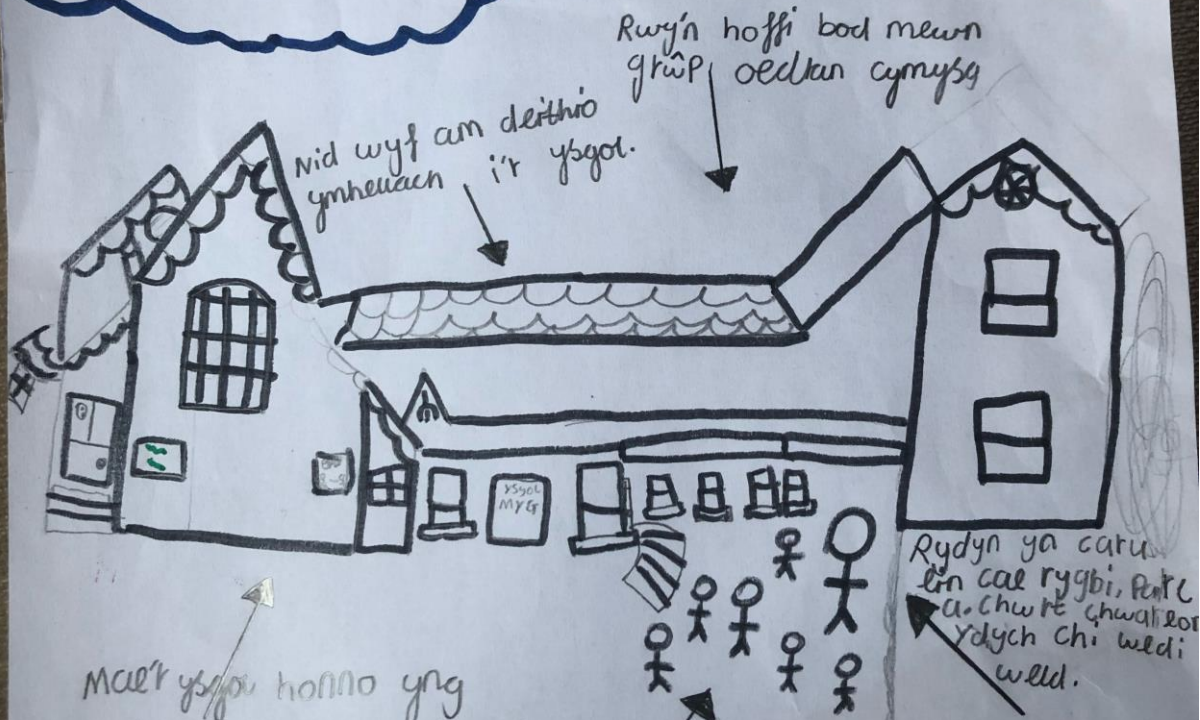 Rwy'n hoffi bod mewn
grŵp oedran cymysg
Nid wyf am deithio
ymhellach i'r ysgol.
ysgol
MYG
Rydyn yn caru
ein cae rygbi, Parc
a chwrt chwaraeon
Ydych chi wedi
weld.
Mae'r ysgol honno yng